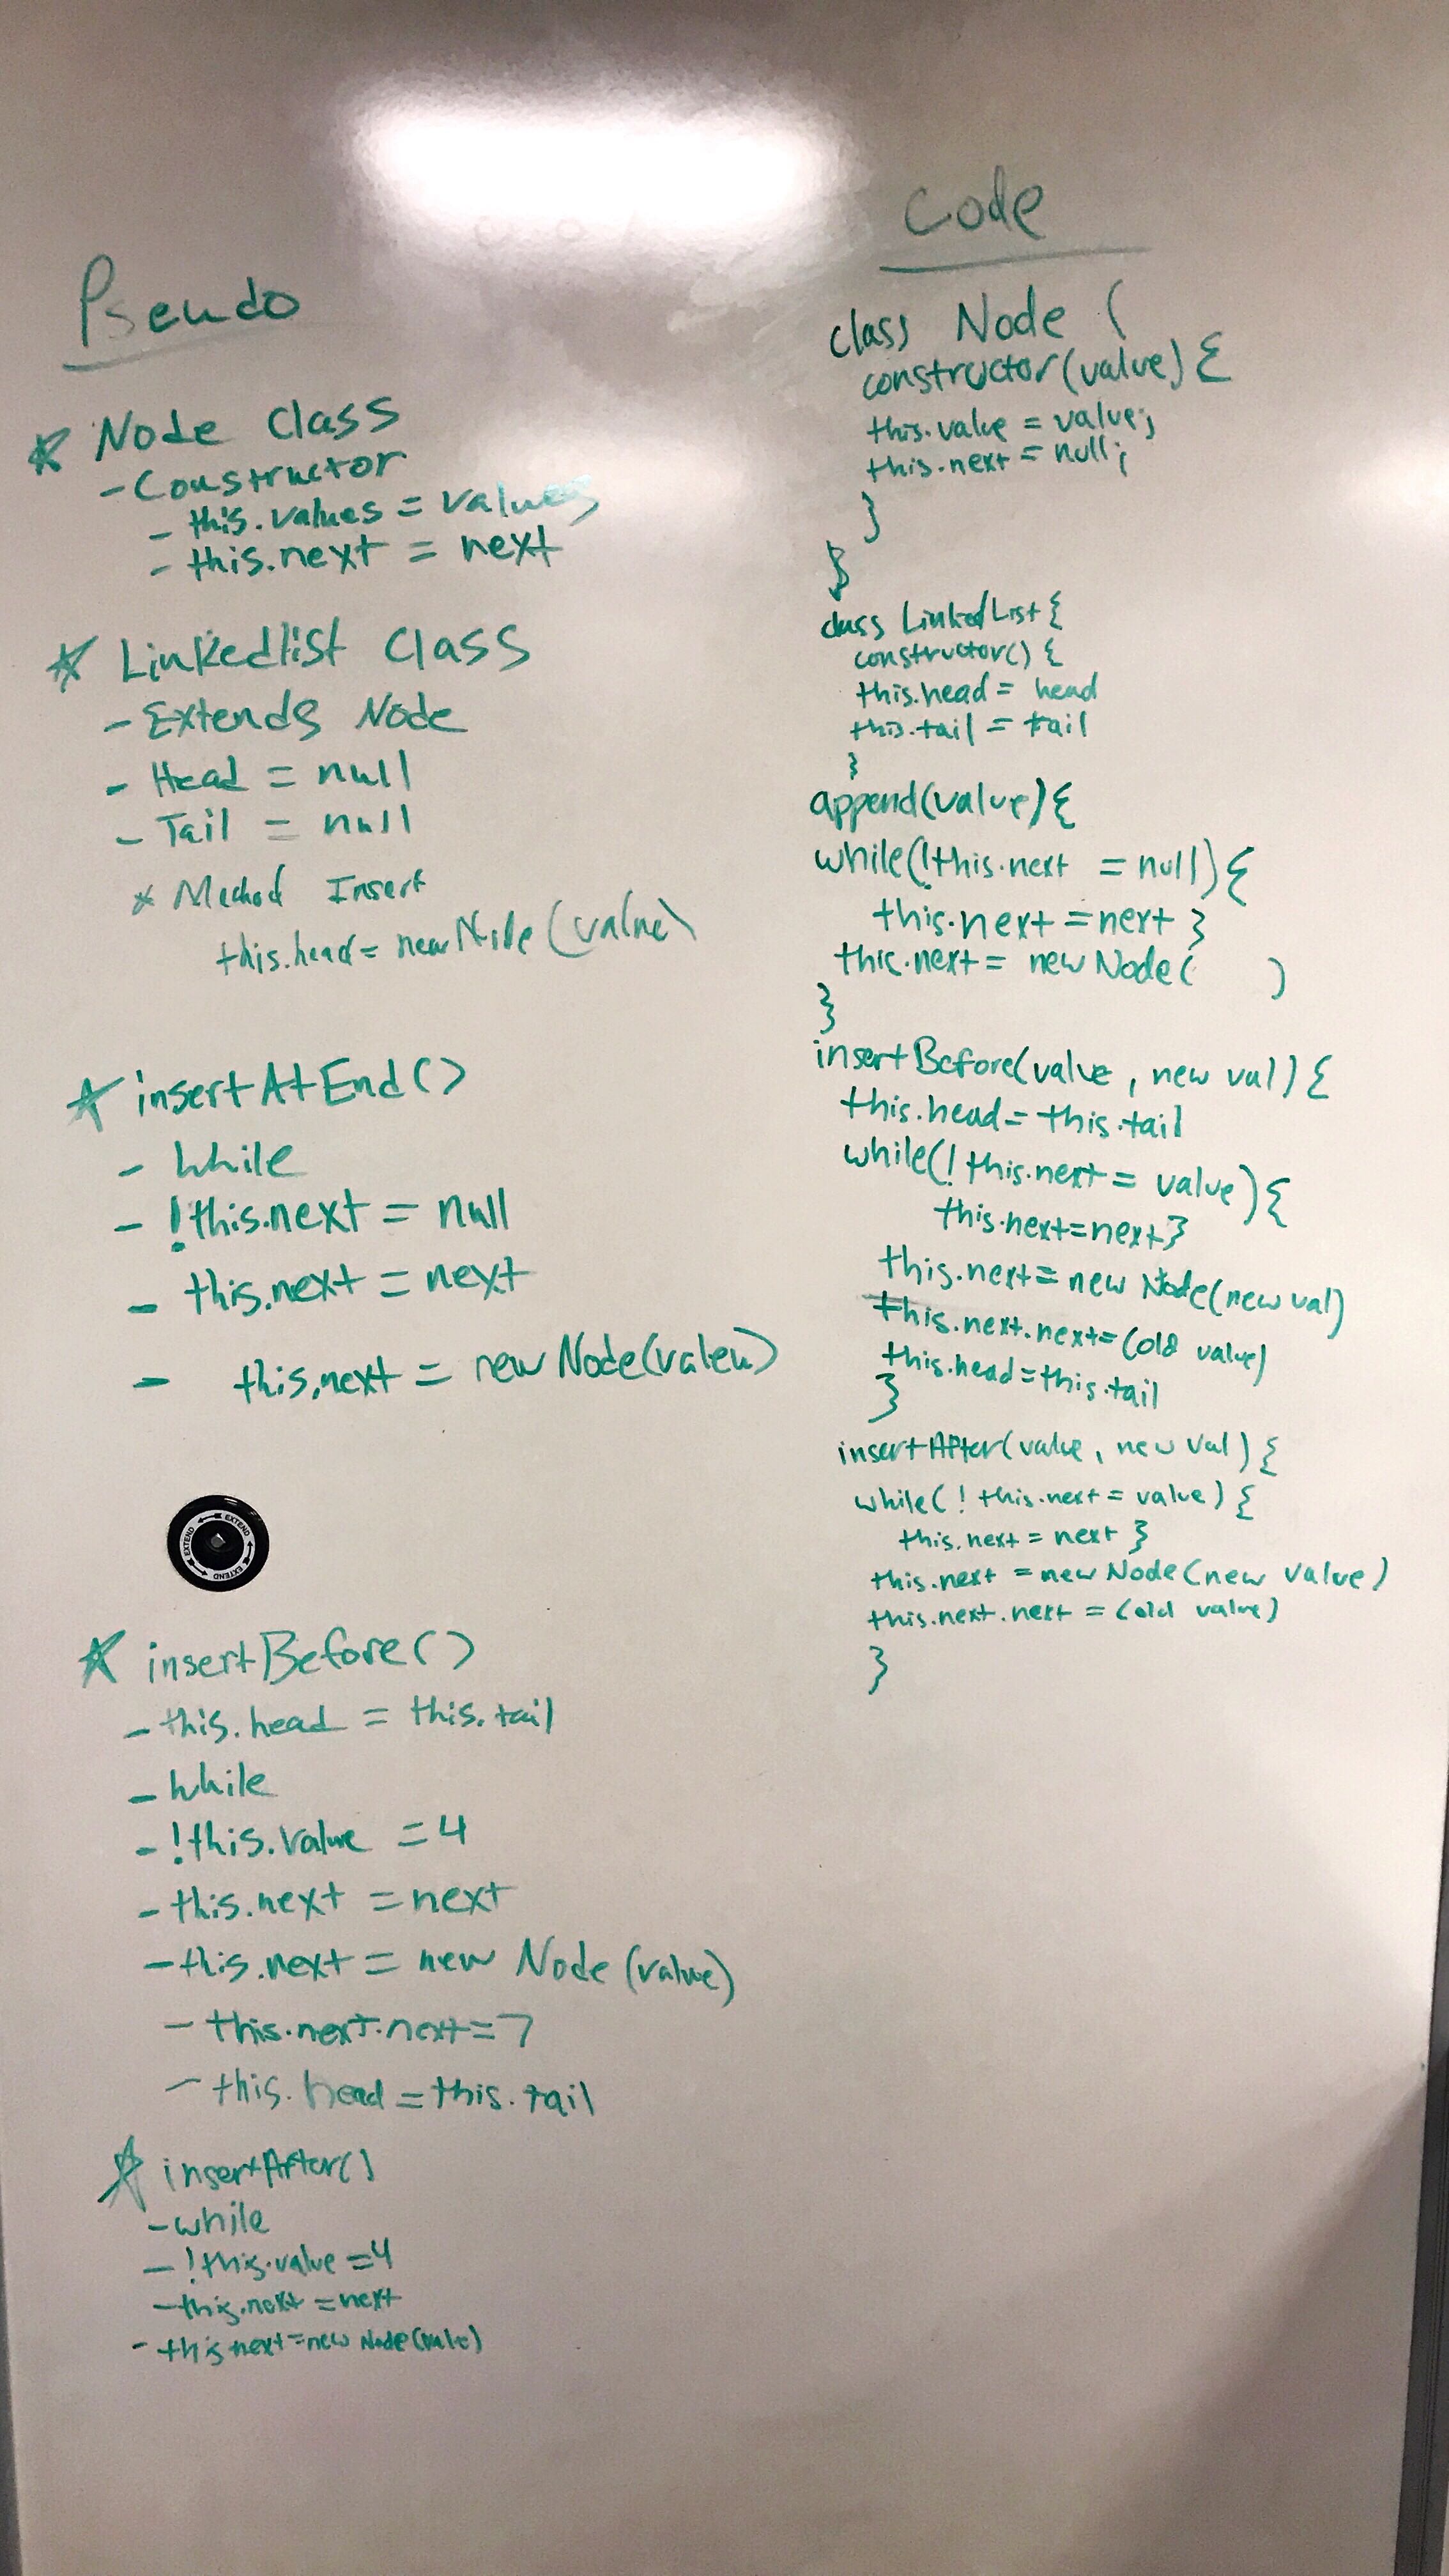 Pseudo
* Node Class
- Constructor
- this.values = values
- this.next = next
* Linkedlist Class
- Extends Node
- Head = null
- Tail = null
* Method Insert
this.head = new Node (value)
* insertAtEnd()
- while
- !this.next = null
- this.next = next
- this.next = new Node(valeu)
EXTEND EXTEND EXTEND EXTEND
* insertBefore()
- this.head = this.tail
- while
- !this.value = 4
- this.next = next
- this.next = new Node (value)
- this.next.next = 7
- this.head = this.tail
* insertAfter()
- while
- !this.value = 4
- this.next = next
- this next = new Node(value)
Code
class Node {
constructor(value) {
this.value = value;
this.next = null;
}
}
class LinkedList {
constructor() {
this.head = head
this.tail = tail
}
append(value) {
while(!this.next = null) {
this.next = next }
this.next = new Node( )
}
insertBefore(value, new val) {
this.head = this.tail
while(! this.next = value) {
this.next = next }
this.next = new Node(new val)
this.next.next = (old value)
this.head = this.tail
}
insertAfter(value, new val) {
while( ! this.next = value) {
this.next = next }
this.next = new Node (new value)
this.next.next = (old value)
}